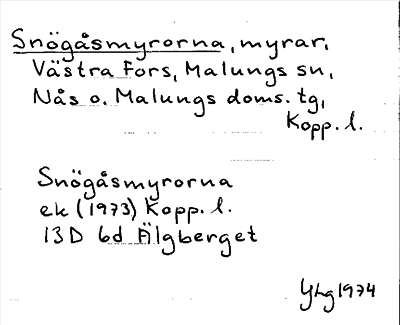 Snögåsmyrorna, myrar,
Västra Fors, Malungs sn,
Nås o. Malungs doms. tg,
Kopp. l.
Snögåsmyrorna
ek (1973) Kopp. l.
13D 6d Älgberget
YLg 1974